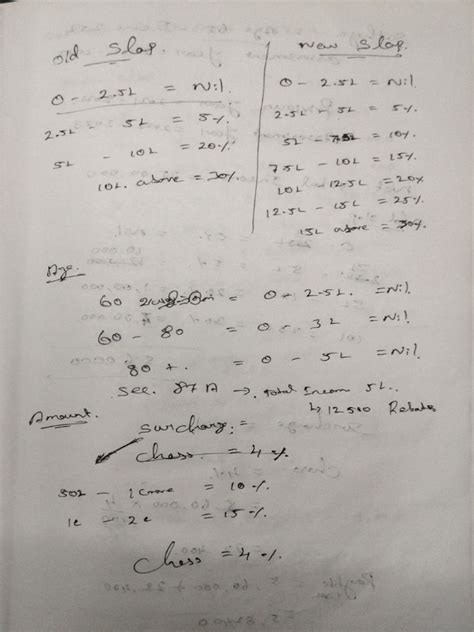 old Slap.
0 - 2.5L = Nil.
2.5L - 5L = 5%.
5L - 10L = 20%.
10L. above = 30%.
New Slap.
0 - 2.5L = Nil.
2.5L - 5L = 5%.
5L - 7.5L = 10%.
7.5L - 10L = 15%.
10L - 12.5L = 20%
12.5L - 15L = 25%
15L above = 30%.
Age.
60 = 0 - 2.5L. = Nil.
60 - 80 = 0 - 3L = Nil.
80 +. = 0 - 5L = Nil.
Sec. 87A → Total Incom 5L..
↳ 12500 Rebate
Amount.
Surcharge =
Chess = 4%.
50L - 1 Crore = 10%.
1c - 2c = 15%.
Chess = 4%.